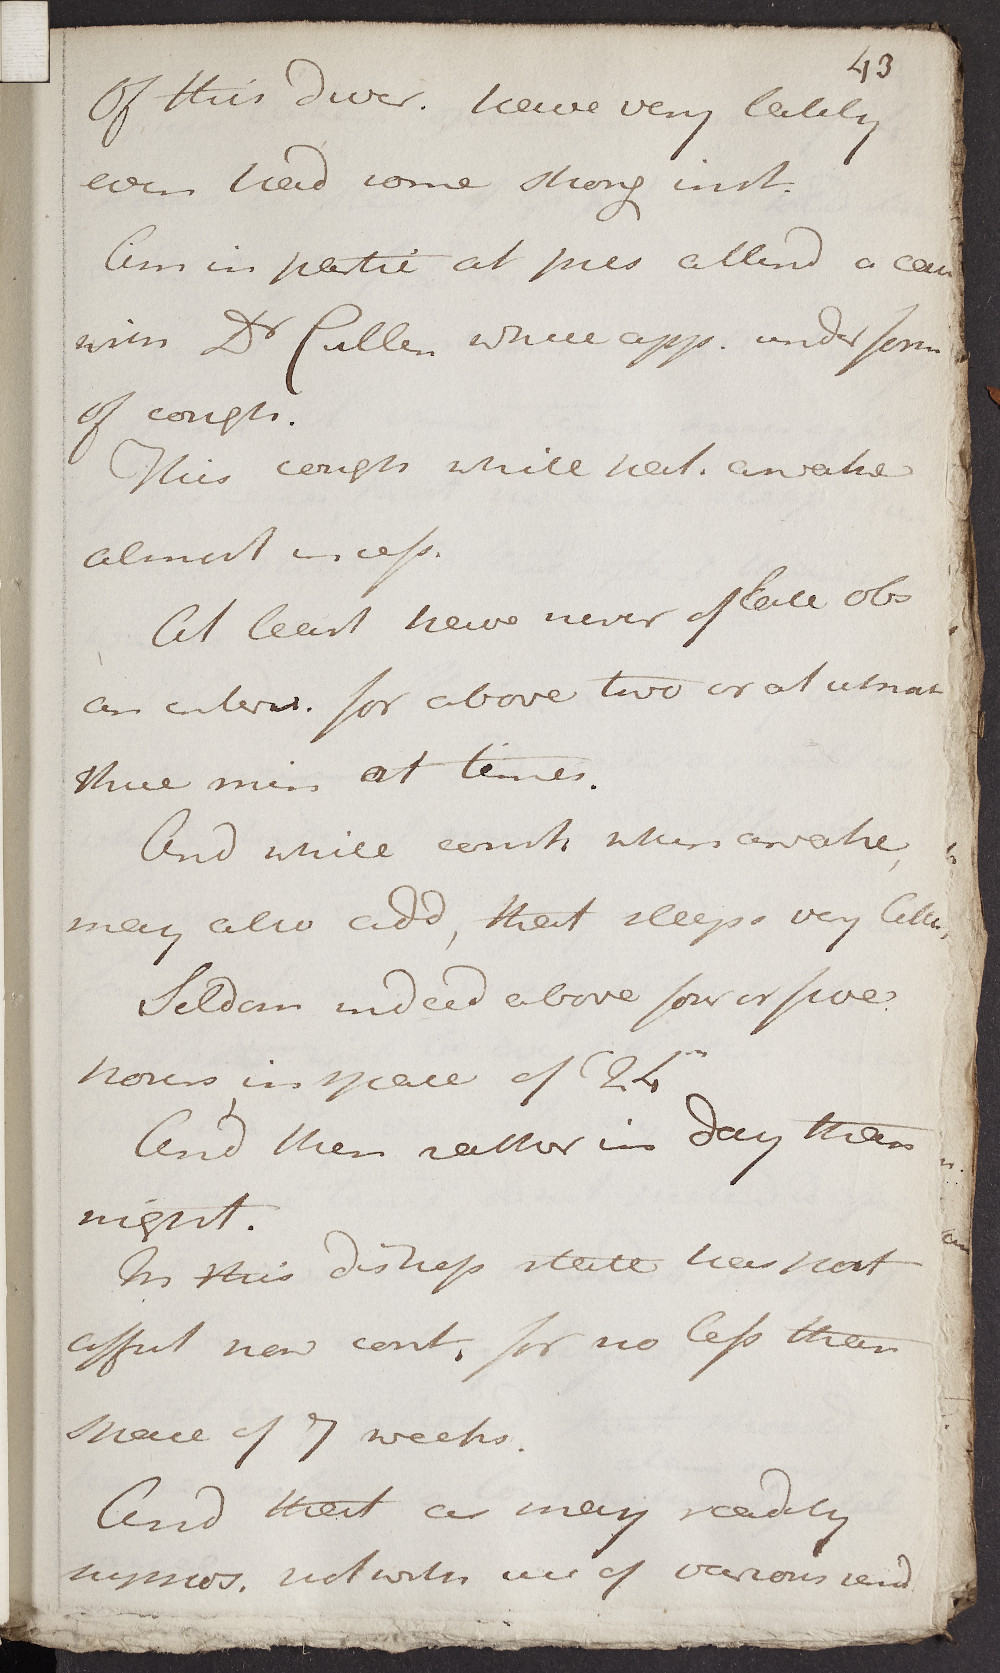 43
Of this diver. have very lately
even had some strong inst.
Am in partic at pres attend a case
with Dr Cullen where app. under form
of cough.
This cough while pat. awake
almost incess.
At least have never of late obs
an interv. for above two or at utmost
three min at times.
And while const. when awake,
may also add, that sleeps very little,
Seldom indeed above four or five
hours, in space of 24
And then rather in day than
night.
In this distress state has port
afful now cont. for no less than
space of 7 weeks.
And that as may readily
suppos. notwith use of various remd